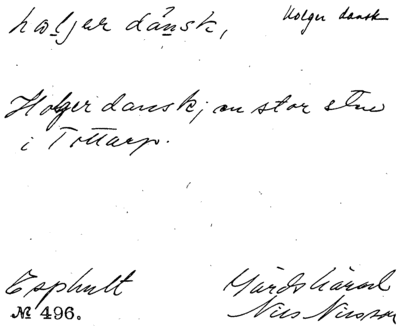 hɷljer dånsk,
Holger dansk
Holger dansk; en stor sten
i Tottarp.
Esphult
Nº 496.
Gärds härad
Nils Nilsson